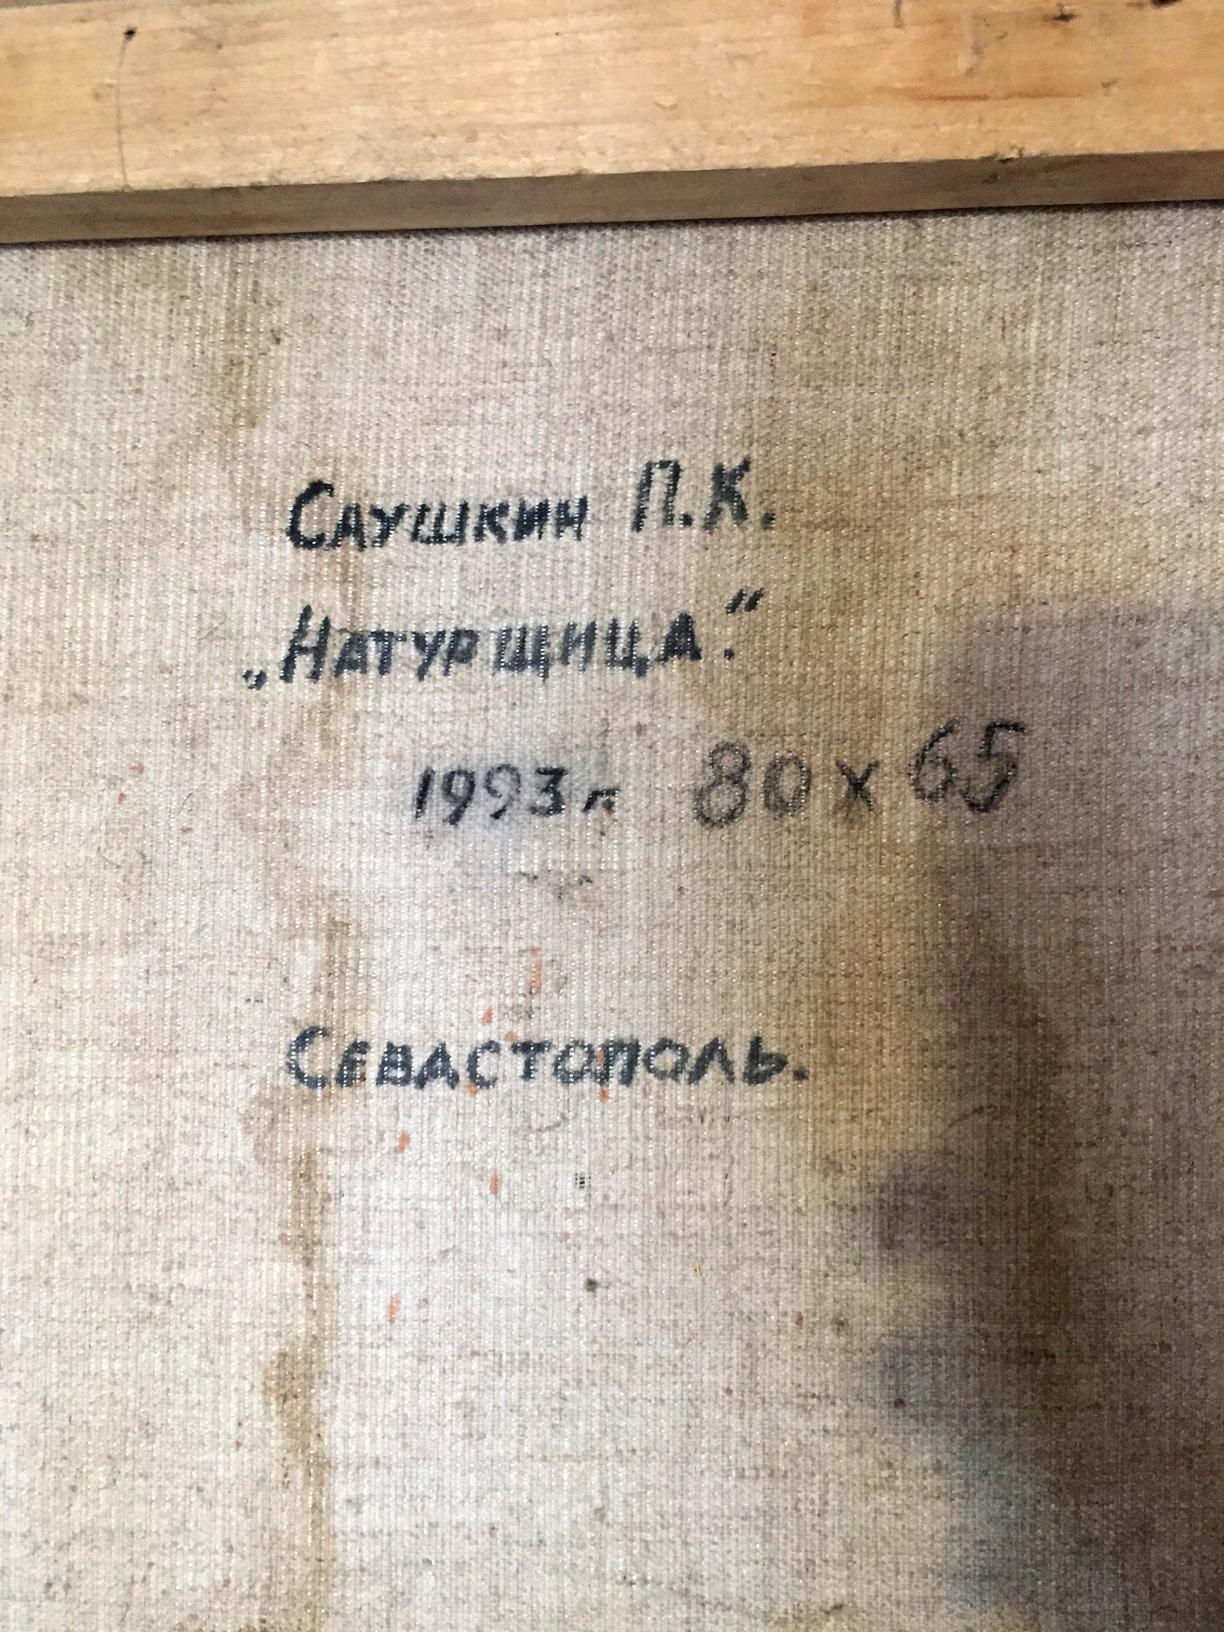 Саушкин П.К.
„Натурщица."
1993 г. 80 х 65
Севастополь.